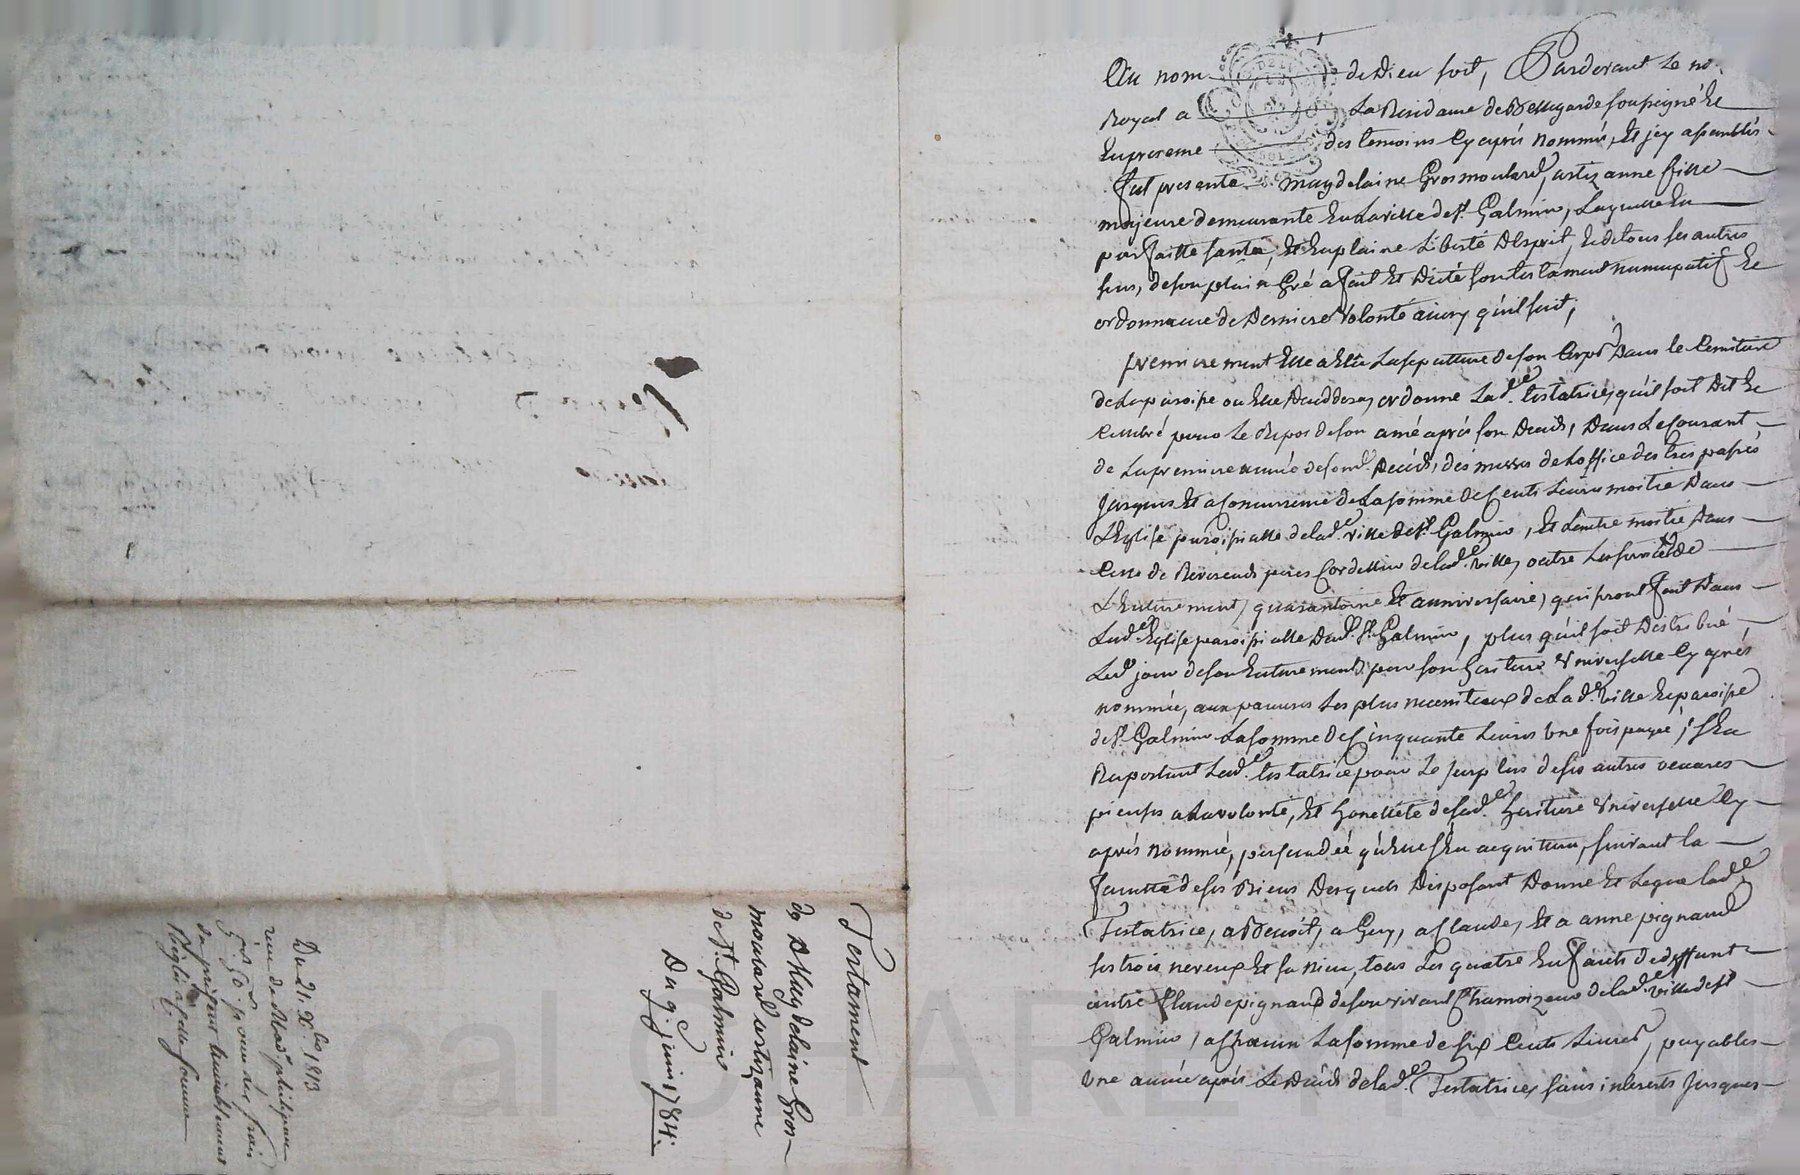 Au nom de Dieu soit, Pardevant Le no
Royal a La Residance de Bellegarde soussigné Et
En presence des temoins Cy après nommés, Et jcy assemblés
fut presente magdelaine Grosmoulard, artizanne fille
majeure demeurante En La ville de St. Galmier, Laquelle En
parfaitte santé, Et En plaine Liberté d'Esprit, Et de tous ses autres
sens, de son plain Gré a fait Et Dicté son testament nuncupatif Et
ordonnance de Derniere Volonté ainsy qu'il suit,
premierement Elle a Elû La sepulture de son Corps Dans le Cemitiere
de La paroisse ou Elle Decedera, ordonne Lade. testatrice, qu'il soit Dit Et
Celebré pour Le Repos de son ame après son Decès, Dans Le Courant
de La premiere année de sond. Decès, des messes de Loffice des trespassés
jusques Et a Concurrence de La somme de Cent Livres moitié Dans
L'Eglise paroissialle de lade. ville de St. Galmier, Et L'autre moitié Dans
Celle de Reverends peres Cordelliers de lade. Ville, outre
L'Enterrement, quarantaine Et anniversaire, qui seront fait Dans
Lade. Eglise paroissialle Dud. St. Galmier, plus qu'il soit Distribué
Led. jour de son Enterrement par son heritiere Universelle Cy après
nommée, aux pauvres Les plus necessiteux de Lade. Ville Et paroisse
de St. Galmier La somme de Cinquante Livres Une fois payée; s'En
Raportant Lade. testatrice pour Le surplus de ses autres oeuvres
pieuses a La volonté, Et honetteté de sade. heritiere Universelle Cy
après nommée, persuadée qu'Elle s'En acquittera, suivant la
faculté de ses Biens Desquels Disposant Donne Et Legue lade.
Testatrice, a Benoit, a Guy, a Claude, Et a anne pignaud
ses trois neveux Et sa niece, tous Les quatre Enfants de deffunt
autre Claude pignaud de son vivant Chamoizeur de lade. ville de St
Galmier, a Chacun La somme de six Cents Livres, payables
Une année après Le Decès de lade. Testatrice, sans interests jusques
Testament
de Dlle Magdelaine Gros-
moulard artizanne
de St. Galmier
Du 9. juin 1784.
Du 21. Xbre 1813
reçu de Mad. philipon
pour les frais
du présent